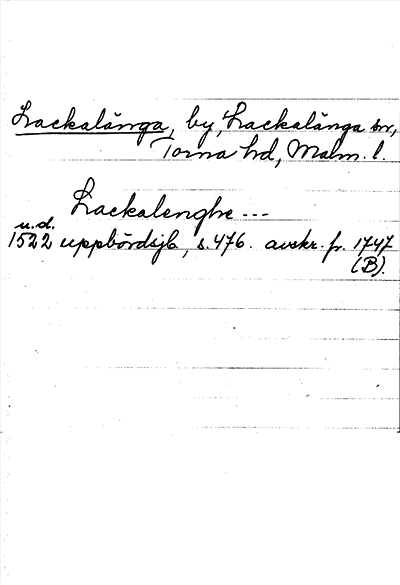 Lackalänga, by, Lackalänga sn,
Torna hd, Malm. l.
Lackalenghe ---
u.d.
1522 uppbördsjb, s. 476. avskr. fr. 1747
(B).